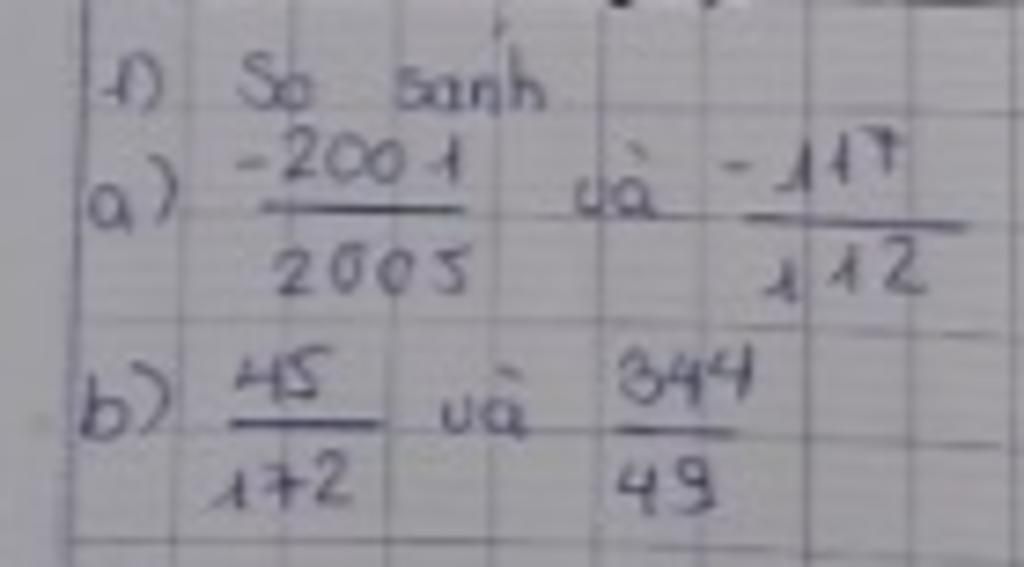 1) So sánh
a) -2001/2005 và -117/112
b) 45/172 và 344/49